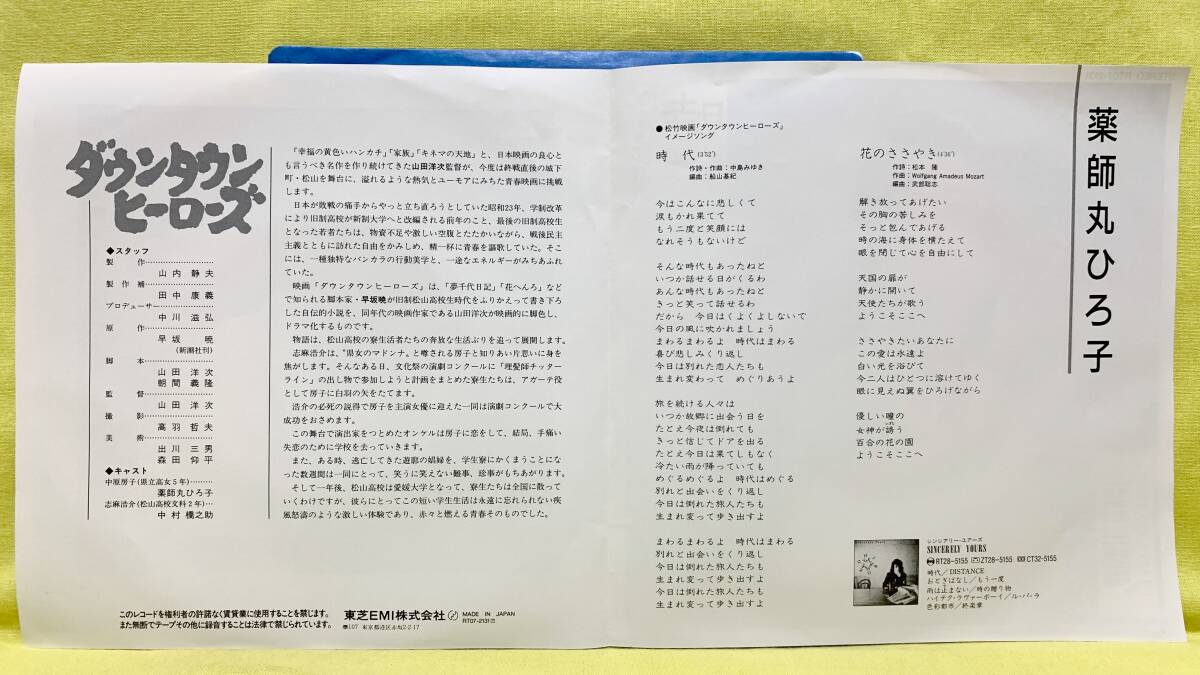 ダウンタウン
ヒーローズ
◆スタッフ
製作
山内静夫
製作補
田中康義
プロデューサー
中川滋弘
原作
早坂暁
(新潮社刊)
脚本
山田洋次
朝間義隆
監督
山田洋次
撮影
高羽哲夫
美術
出川三男
森田仰平
◆キャスト
中原房子(県立高女5年)
薬師丸ひろ子
志麻浩介(松山高校文科2年)
中村橋之助
『幸福の黄色いハンカチ』『家族』『キネマの天地』と、日本映画の良心と
も言うべき名作を作り続けてきた山田洋次監督が、今度は終戦直後の城下
町・松山を舞台に、溢れるような熱気とユーモアにみちた青春映画に挑戦
します。
日本が敗戦の痛手からやっと立ち直ろうとしていた昭和23年、学制改革
により旧制高校が新制大学へと改編される前年のこと、最後の旧制高校生
となった若者たちは、物資不足や激しい空腹とたたかいながら、戦後民主
主義とともに訪れた自由をかみしめ、精一杯に青春を謳歌していた。そこ
には、一種独特なバンカラの行動美学と、一途なエネルギーがみちあふれ
ていた。
映画『ダウンタウンヒーローズ』は、『夢千代日記』『花へんろ』など
で知られる脚本家・早坂暁が旧制松山高校生時代をふりかえって書き下ろ
した自伝的小説を、同年代の映画作家である山田洋次が映画的に脚色し、
ドラマ化するものです。
物語は、松山高校の寮生活者たちの奔放な生活ぶりを追って展開します。
志麻浩介は、“県女のマドンナ”と噂される房子と知りあい片思いに身を
焦がします。そんなある日、文化祭の演劇コンクールに「理髪師チッター
ライン」の出し物で参加しようと計画をまとめた寮生たちは、アガーテ役
として房子に白羽の矢をたてます。
浩介の必死の説得で房子を主演女優に迎えた一同は演劇コンクールで大
成功をおさめます。
この舞台で演出家をつとめたオンケルは房子に恋をして、結局、手痛い
失恋のために学校を去っていきます。
また、ある時、逃亡してきた遊廓の娼婦を、学生寮にかくまうことにな
った数週間は一同にとって、笑うに笑えない難事、珍事がもちあがります。
そして一年後、松山高校は愛媛大学となって、寮生たちは全国に散って
いくわけですが、彼らにとってこの短い学生生活は永遠に忘れられない疾
風怒濤のような激しい体験であり、赤々と燃える青春そのものでした。
このレコードを権利者の許諾なく賃貸業に使用することを禁じます。
また無断でテープその他に録音することは法律で禁じられています。
東芝EMI株式会社
〠107 東京都港区赤坂2-2-17
MADE IN JAPAN
RT07-2131
●松竹映画「ダウンタウンヒーローズ」
イメージソング
時代(3'52")
作詩・作曲：中島みゆき
編曲：船山基紀
今はこんなに悲しくて
涙もかれ果てて
もう二度と笑顔には
なれそうもないけど
そんな時代もあったねと
いつか話せる日がくるわ
あんな時代もあったねと
きっと笑って話せるわ
だから 今日はくよくよしないで
今日の風に吹かれましょう
まわるまわるよ 時代はまわる
喜び悲しみくり返し
今日は別れた恋人たちも
生まれ変わって めぐりあうよ
旅を続ける人々は
いつか故郷に出会う日を
たとえ今夜は倒れても
きっと信じてドアを出る
たとえ今日は果てしもなく
冷たい雨が降っていても
めぐるめぐるよ 時代はめぐる
別れと出会いをくり返し
今日は倒れた旅人たちも
生まれ変って歩き出すよ
まわるまわるよ 時代はまわる
別れと出会いをくり返し
今日は倒れた旅人たちも
生まれ変って歩き出すよ
今日は倒れた旅人たちも
生まれ変って歩き出すよ
花のささやき(4'36")
作詩：松本隆
作曲：Wolfgang Amadeus Mozart
編曲：武部聡志
解き放ってあげたい
その胸の苦しみを
そっと包んであげる
時の海に身体を横たえて
眼を閉じて心を自由にして
天国の扉が
静かに開いて
天使たちが歌う
ようこそここへ
ささやきたいあなたに
この愛は永遠よ
白い光を浴びて
今二人はひとつに溶けてゆく
眼に見えぬ翼をひろげながら
優しい瞳の
女神が誘う
百合の花の園
ようこそここへ
シンシアリー・ユアーズ
SINCERELY YOURS
RT28-5155 ZT28-5155 CT32-5155
時代／DISTANCE
おとぎばなし／もう一度
雨は止まない／時の贈り物
ハイテク・ラヴァーボーイ／ル・パ・ラ
色彩都市／終楽章
薬師丸ひろ子